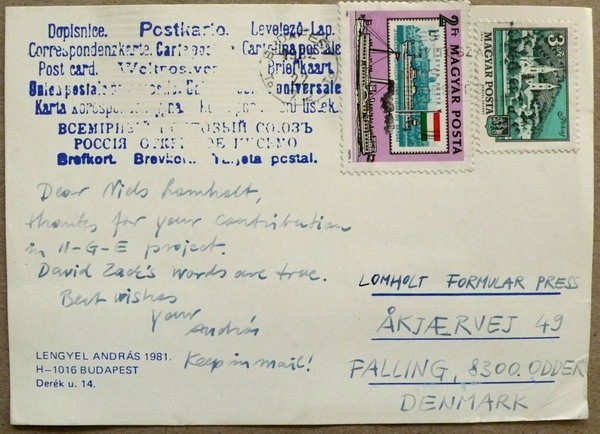 Dopisnice. Postkarto. Levelező-Lap.
Correspondenzkarte. Cartolina postale
Post card. Weltpostver Briefkaart
Union postale universelle. universale
Karta korespondencyjna
ВСЕМІРНЫЙ ПОЧТОВЫЙ СОЮЗЪ
РОССІЯ ОТКРЫТОЕ ПИСЬМО
Brefkort. Brevkort. Tarjeta postal.
2 Ft MAGYAR POSTA
3 Ft
MAGYAR POSTA
Dear Niels Lomholt,
thanks for your contribution
in N-G-E project.
David Zack's words are true.
Best wishes
your
András
Keep in mail!
LENGYEL ANDRÁS 1981.
H-1016 BUDAPEST
Derék u. 14.
LOMHOLT FORMULAR PRESS
ÅKJÆRVEJ 49
FALLING, 8300. ODDER
DENMARK